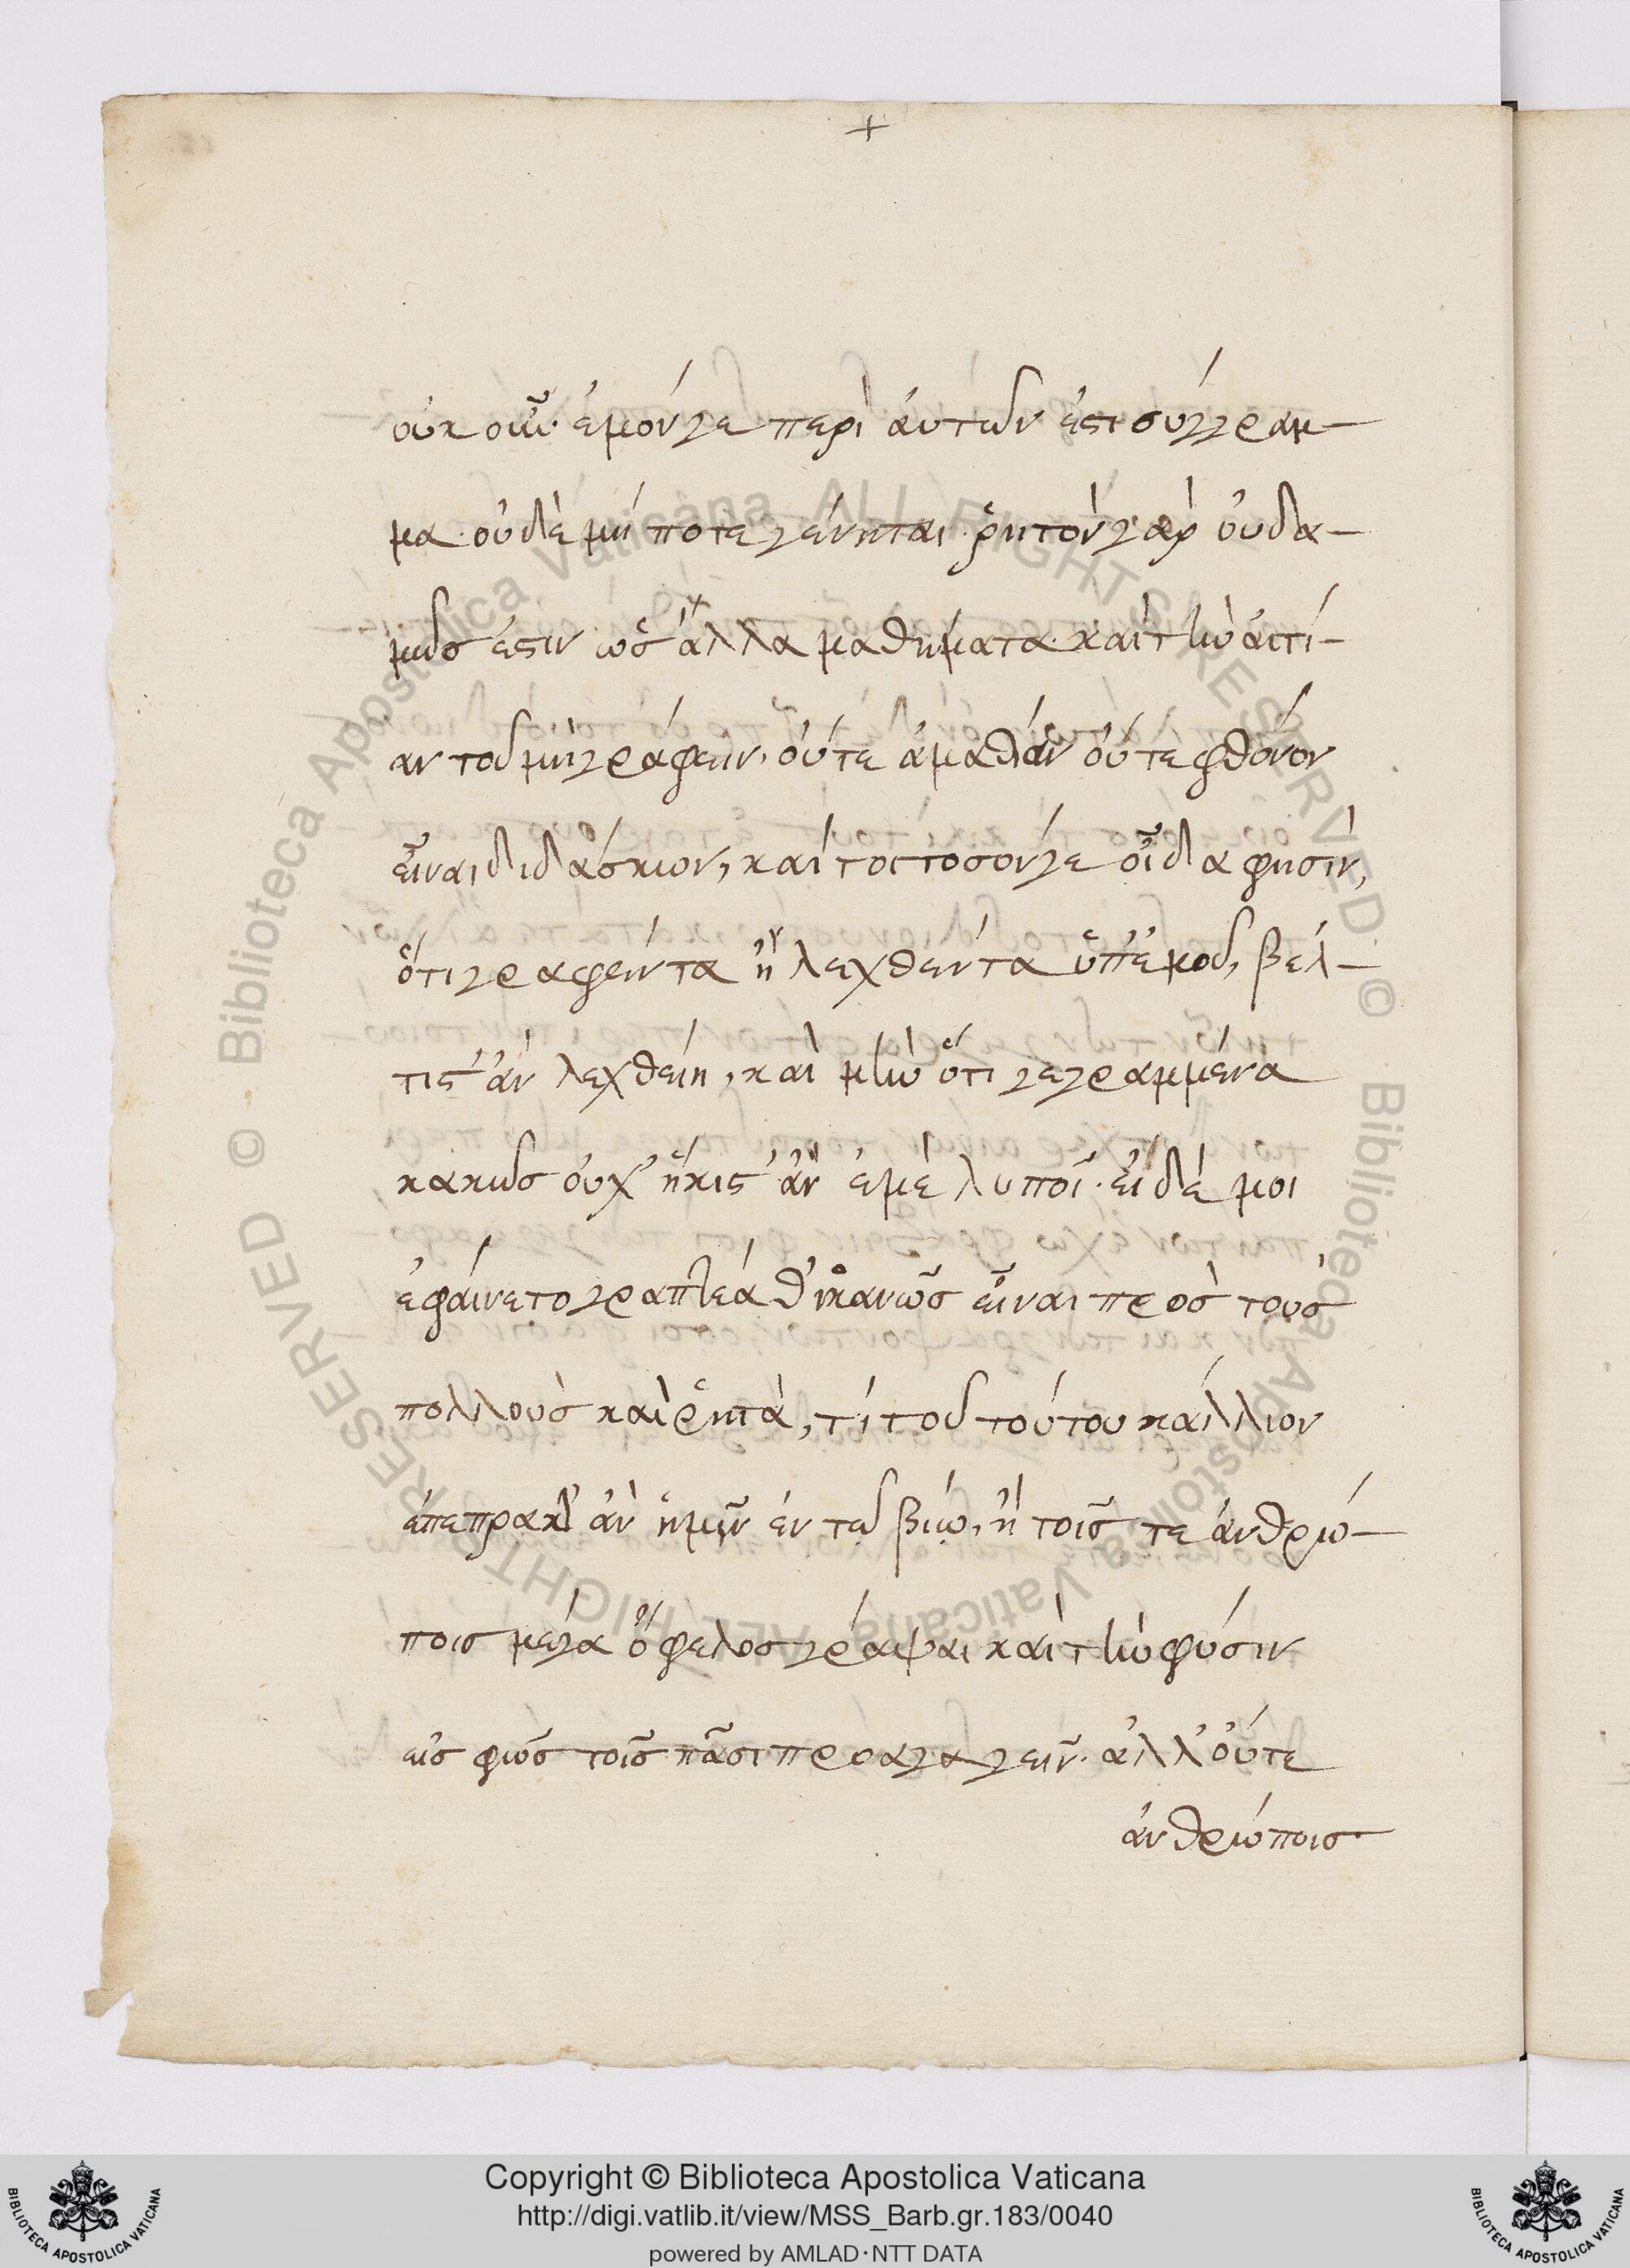 +
οὐκ οὖν ἐμόν γε περὶ ἀυτῶν ἐστι σύγγραμ-
μα οὐδὲ μή ποτε γένηται· ῥητὸν γὰρ ὀυδα-
μῶς ἐστιν ὡς ἄλλα μαθήματα· καὶ τὴν ἀιτί-
αν τοῦ μὴ γράφειν· ὀύτε ἀμαθίαν ὀύτε φθόνον
εἶναι διδάσκων, καίτοι τοσόν γε οἶδα φησὶν,
ὅτι γραφέντα ἢ λεχθέντα ὑπ' ἐμοῦ, βέλ-
τιστ' ἀν λεχθείη, καὶ μὴν ὅτι γεγραμμένα
κακῶς ὀυχ' ἥκιστ' ἀν ἐμὲ λυποῖ· εἰ δέ μοι
ἐφάινετο γραπτέα θ' ἱκανῶς εἶναι πρὸς τοὺς
πολλοὺς καὶ ῥητὰ, τί τοῦ τούτου κάλλιον
ἐπέπρακτ' ἀν ἡμῖν ἐν τῷ βίῳ, ἢ τοῖς τε ἀνθρώ-
ποις μέγα ὄφελος γράψαι καὶ τὴν φύσιν
εἰς φῶς τοῖς πᾶσι πραγαγεῖν· ἀλλ' ὀύτε
ἀνθρώποις
© Biblioteca Apostolica Vaticana ALL RIGHTS RESERVED © Biblioteca Apostolica Vaticana ALL RIGHTS RESERVED
Copyright © Biblioteca Apostolica Vaticana
http://digi.vatlib.it/view/MSS_Barb.gr.183/0040
powered by AMLAD·NTT DATA
BIBLIOTECA APOSTOLICA VATICANA
BIBLIOTECA APOSTOLICA VATICANA